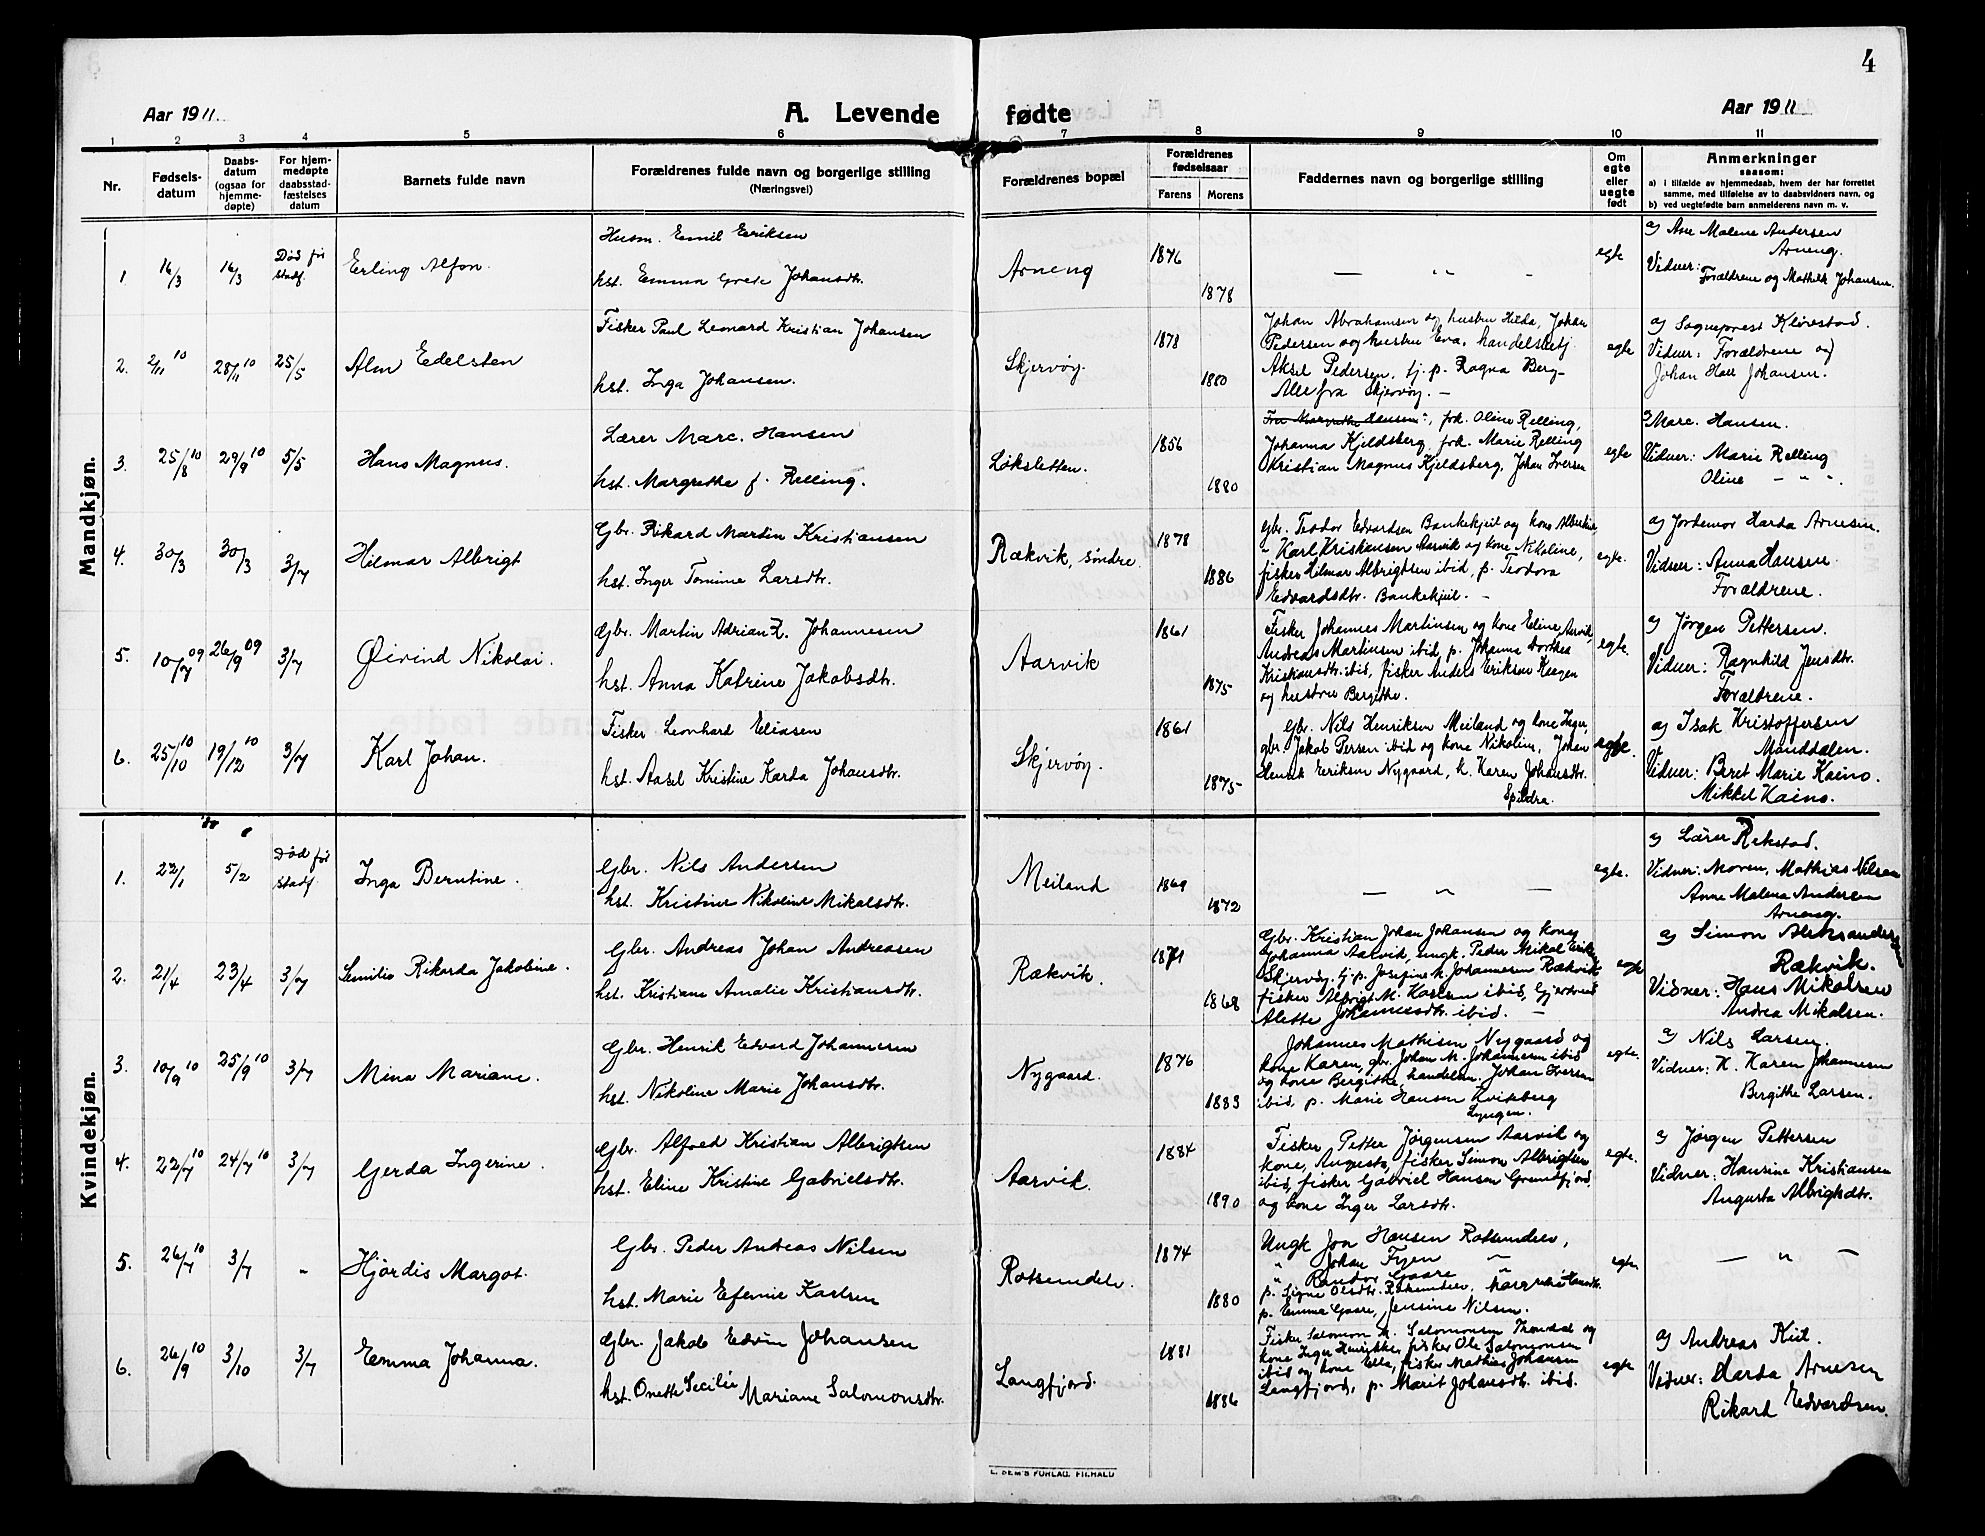 4
Aar 1911
A. Levende fødte
Aar 1911
1 2 3 4 5 6 7 8 9 10 11
Nr.
Fødsels-
datum
Daabs-
datum
(ogsaa for
hjemme-
døpte)
For hjem-
medøpte
daabsstad-
fæstelses
datum
Barnets fulde navn
Forældrenes fulde navn og borgerlige stilling
(Næringsvei)
Forældrenes bopæl
Forældrenes
fødselsaar
Farens Morens
Faddernes navn og borgerlige stilling
Om
egte
eller
uegte
født
Anmerkninger
saasom:
a) i tilfælde av hjemmedaab, hvem der har forrettet
samme, med tilføielse av to daabsvidners navn, og
b) ved uegtefødte barn anmelderens navn m. v.
Mandkjøn.
1 16/3 16/3 Død før
stadf.
Erling Alfon.
Husm. Emil Eriksen
hst. Emma Grete Johansdtr.
Arneng
1876
1878
— " -
egte
a) Ane Malene Andersen
Arneng.
Vidner:
Forældrene og Mathilde Johansen.
2. 2/11 10 28/11 10 25/5
Alm Edelsten
Fisker Paul Leonard Kristian Johansen
hst. Inga Johansen.
Skjervøy.
1878
1880
Johan Abrahamsen og hustru Hilda, Johan
Pedersen og hustru Eva, handelsbetj.
Aksel Pedersen, tj. p. Ragna Berg-
Alle fra Skjervøy. -
egte
a) Sogneprest Kløvstad.
Vidner: Forældrene og
Johan Hall Johansen.
3. 25/8 10 29/9 10 5/5
Hans Magnus.
Lærer Marc. Hansen
hst. Margrethe f. Relling.
Løksletten.
1856
1880
Fru Margrethe Hansen, frk. Oline Relling,
Johanna Kjeldsberg, frk. Marie Relling
Kristian Magnus Kjeldsberg, Johan Iversen
egte
a) Marc. Hansen.
Vidner: Marie Relling
Oline - " -.
4. 30/3 30/3 3/7
Hilmar Albrigt
Gbr. Rikard Martin Kristiansen
hst. Inger Tomine Larsdtr.
Rækvik, søndre
1878
1886
Gbr. Teodor Edvardsen Bankekjeil og kone Albertine,
" Karl Kristiansen Aarvik og kone Nikoline,
fisker Hilmar Albrigtsen ibid, p. Teodora
Edvardsdtr. Bankekjeil. -
egte.
a) Jordemor Harda Arnesen.
Vidner: Anna Hansen.
Forældrene.
5. 10/7 09 26/9 09 3/7
Øivind Nikolai.
Gbr. Martin Adrian Z. Johannesen
hst. Anna Katrine Jakobsdtr.
Aarvik
1861
1875
Fisker Johannes Martinsen og kone Eline, Aarvik
Andreas Martinsen ibid, p. Johanna Dorthea
Kristiansdtr. ibid, fisker Anders Eriksen Haagen
og hustru Bergithe.
egte.
a) Jørgen Pettersen.
Vidner: Ragnhild Jensdtr.
Forældrene.
6. 25/10 10 19/12 10 3/7
Karl Johan.
Fisker Leonhard Eliasen
hst. Aasel Kristine Karda Johansdtr.
Skjervøy.
1861
1875
Gbr. Nils Henriksen Meiland og kone Inger,
gbr. Jakob Persen ibid og kone Nikoline, Johan
Henrik Eriksen Nygaard, k. Karen Johansdtr.
Spildra.
egte.
a) Isak Kristoffersen
Manddalen.
Vidner: Beret Marie Kaino.
Mikkel Kaino.
Kvindekjøn.
1. 22/1 5/2 Død før
stadf.
Inga Berntine.
Gbr. Nils Andersen
hst. Kristine Nikoline Mikalsdtr.
Meiland
1869
1872
— " —
egte.
a) Lærer Rekstad.
Vidner: Moren, Mathias Nilsen
Anne Malena Andersen
Arneng.
2. 21/4 23/4 3/7
Semilie Rikarda Jakobine.
Gbr. Andreas Johan Andreasen
hst. Kristiane Amalie Kristiansdtr.
Rækvik.
1871
1868
Gbr. Kristian Johan Johansen og kone
Johanna Aarvik, ungk. Peder Mikal
Skjervøy, tj. p. Josefine M. Johannesen Rækvik
fisker Albrigt M. Karlsen ibid,
Alette Johannesdtr. ibid. -
egte
a) Simon Aleksandersen
Rækvik.
Vidner: Hans Mikalsen
Andrea Mikalsen.
3. 10/9 10 25/9 10 3/7
Mina Mariane.
Gbr. Henrik Edvard Johannesen
hst. Nikoline Marie Johansdtr.
Nygaard.
1876
1883
Johannes Mathisen Nygaard og
kone Karen, gbr. Johan M. Johannesen ibid
og kone Bergithe, handelsm. Johan Iversen
ibid, p. Marie Hansen Kviteberg
Lyngen.
egte.
a) Nils Larsen.
Vidner: K. Karen Johannesen
Bergithe Larsen.
4. 22/7 10 24/7 10 3/7
Gerda Ingerine.
Gbr. Alfred Kristian Albrigtsen
hst. Eline Kristine Gabrielsdtr.
Aarvik.
1884
1890
Fisker Petter Jørgensen Aarvik og
kone, Augusta, fisker Simon Albrigtsen
ibid, fisker Gabriel Hansen Grundfjord,
og kone Inger Larsdtr.
egte.
a) Jørgen Pettersen
Vidner: Hansine Kristiansen
Augusta Albrigtsdtr.
5. 26/7 10 3/7 -
Hjørdis Margot.
Gbr. Peder Andreas Nilsen
hst. Marie Efemie Karlsen
Rotsundelv.
1874
1880
Ungk Jon Hansen Rotsundelv,
" Johan Fyen "
" Randor Gaare "
p. Signe Olsdtr. Rotsundelv, Margrethe Hansdtr.
p. Emma Gaare, Jensine Nilsen.
egte
— " —
6. 26/9 10 3/10 3/7
Emma Johanna.
Gbr. Jakob Edvin Johansen
hst. Onette Secilie Mariane Salomonsdtr.
Langfjord.
1881
1886
Fisker Salomon M. Salomonsen Trondal og
kone Inger Henrikke, fisker Ole Salomonsen
ibid og kone Ella, fisker Mathias Johansen
Langfjord, p. Marit Johansdtr. ibid.
egte
a) Andreas Kiil.
Vidner: Harda Arnesen
Rikard Edvardsen.
E. SEM'S FORLAG, FR.HALD